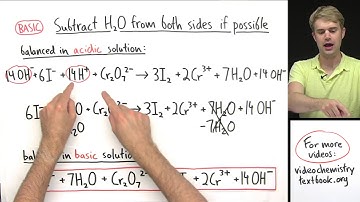 BASIC Subtract H₂O from both sides if possible
balanced in acidic solution:
14OH⁻+6I⁻+14H⁺+Cr₂O₇²⁻→3I₂+2Cr³⁺+7H₂O+14OH⁻
6I⁻ O+Cr₂O₇²⁻→3I₂+2Cr³⁺+7H₂O+14OH⁻
O -7H₂O
in basic solution
+7H₂O+Cr₂O₇²⁻ 2I₂+2Cr³⁺+14OH⁻
For more
videos:
videochemistry
textbook.org